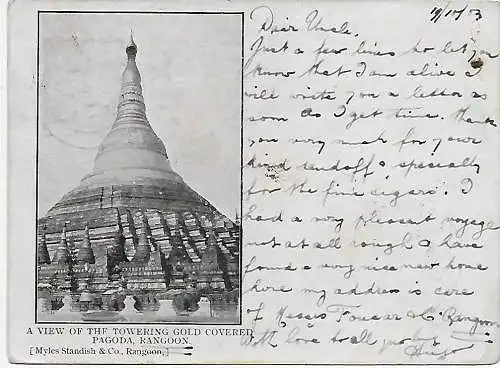 19/10/03
Dear Uncle,
Just a few lines to let you
know that I am alive I
will write you a letter as
soon as I get time. Thank
you very much for your
kind sendoff & specially
for the fine cigars. I
had a very pleasant voyage
not at all rough & have
found a very nice new home
here my address is care
of Messrs Foucar & Co. Rangoon
With love to all
Hugo
A VIEW OF THE TOWERING GOLD COVERED
PAGODA, RANGOON.
[Myles Standish & Co., Rangoon.]